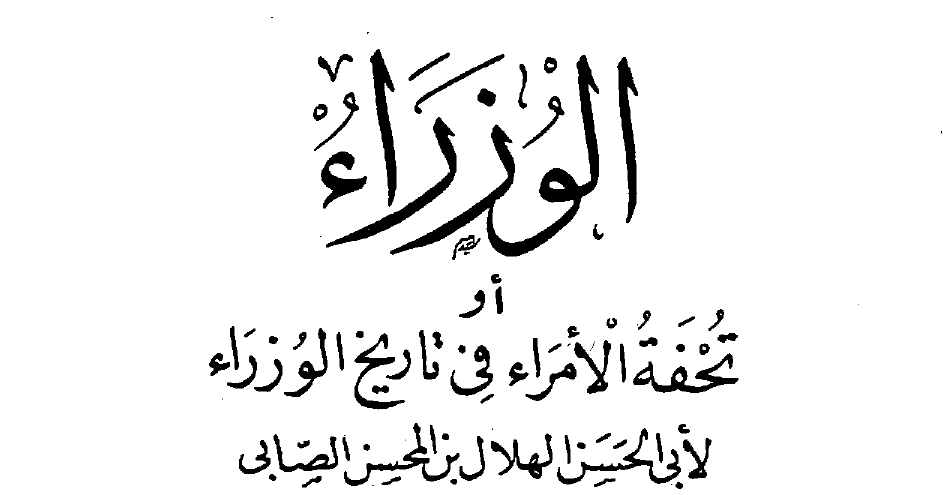 الوُزَرَاءُ
أو
تُحْفَةُ الْأُمَرَاء فِي تاريخ الوُزرَاء
لأبى الحَسَن الهلال بن المحسِن الصِّابى